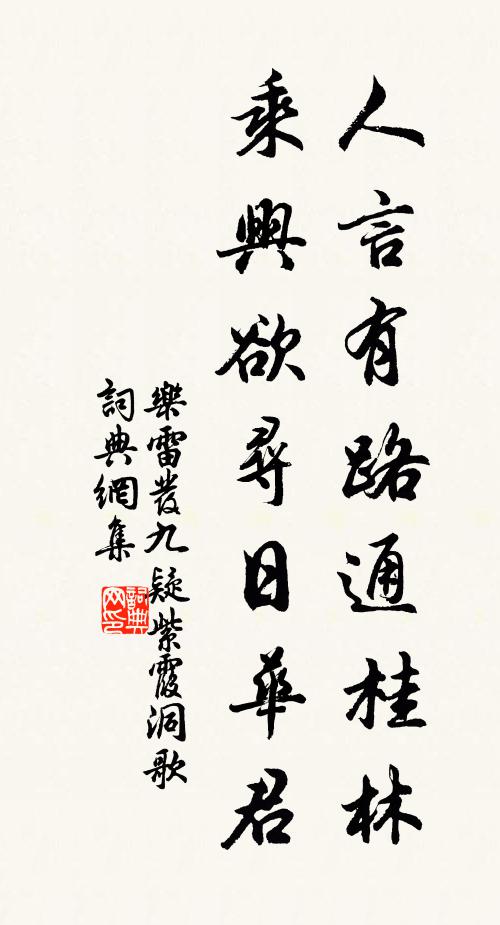 人言有路通桂林
乘興欲尋日華君
樂雷發九疑紫霞洞歌
詞典網集
詞典網印